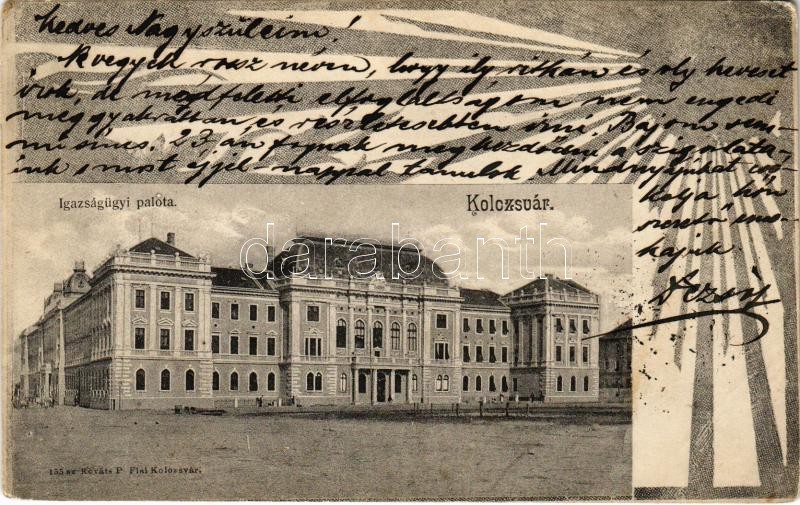 Kedves Nagyszüleim!
Ne vegyék rossz néven, hogy ily ritkán és oly keveset
írok, de módfeletti elfoglaltságom nem engedi
meg gyakrabban és részletesebben írni. Bajom sem-
mi sincs. 23,án fognak megkezdődni a szigorlata-
ink s most éjjel-nappal tanulok. Mindnyájukat csó-
kolja hön
szerető uno-
kájuk
Dezső
Igazságügyi palota.
Kolozsvár.
darabanth
155 sz Kováts P. Fiai Kolozsvár.